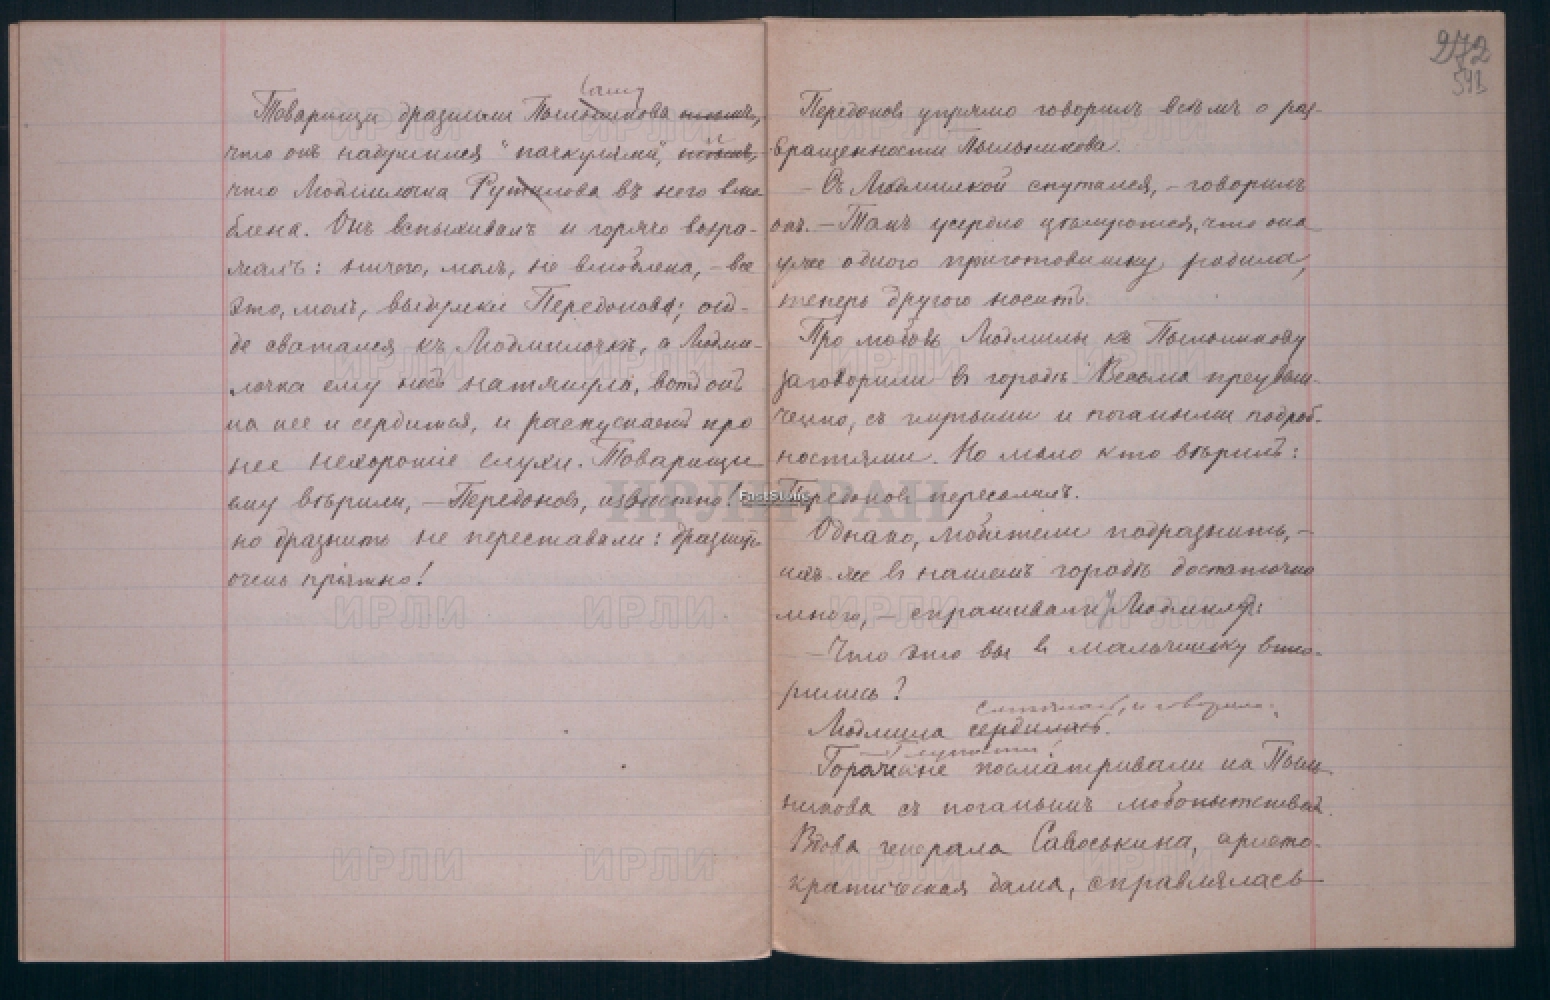 Сашу
Товарищи дразнили Пыльникова тѣмъ,
что онъ надулился "пачкулями",
что Людмилочка Рутилова въ него влю-
блена. Онъ вспыхивалъ и горячо возра-
жалъ: ничего, молъ, не влюблена, – все
это, молъ, выдумки Передонова; онъ-
де сватался къ Людмилочкѣ, а Людми-
лочка ему носъ натянула, вотъ онъ
на нее и сердится, и распускаетъ про
нее нехорошіе слухи. Товарищи
ему вѣрили, – Передоновъ, извѣстно!
но дразнить не переставали: дразнить
очень пріятно!
272
543
Передоновъ упрямо говорилъ всѣмъ о раз-
вращенности Пыльникова.
– Съ Людмилкой спутался, – говорилъ
онъ. – Такъ усердно цѣлуются, что она
уже одного приготовишку родила,
теперь другого носитъ.
Про любовь Людмилы къ Пыльникову
заговорили въ городѣ весьма преувели-
ченно, съ глупыми и погаными подроб-
ностями. Но мало кто вѣрилъ:
Передоновъ пересолилъ.
Однако, любители подразнить, –
ихъ же въ нашемъ городѣ достаточно
много, – спрашивали Людмилу:
– Что это вы въ мальчишку втю-
рились?
смѣялась, и говорила:
Людмила сердилась.
– Глупости!
Горожане посматривали на Пыль-
никова съ поганымъ любопытствомъ.
Вдова генерала Савоськина, аристо-
кратическая дама, справлялась
ИРЛИ РАН
ИРЛИ